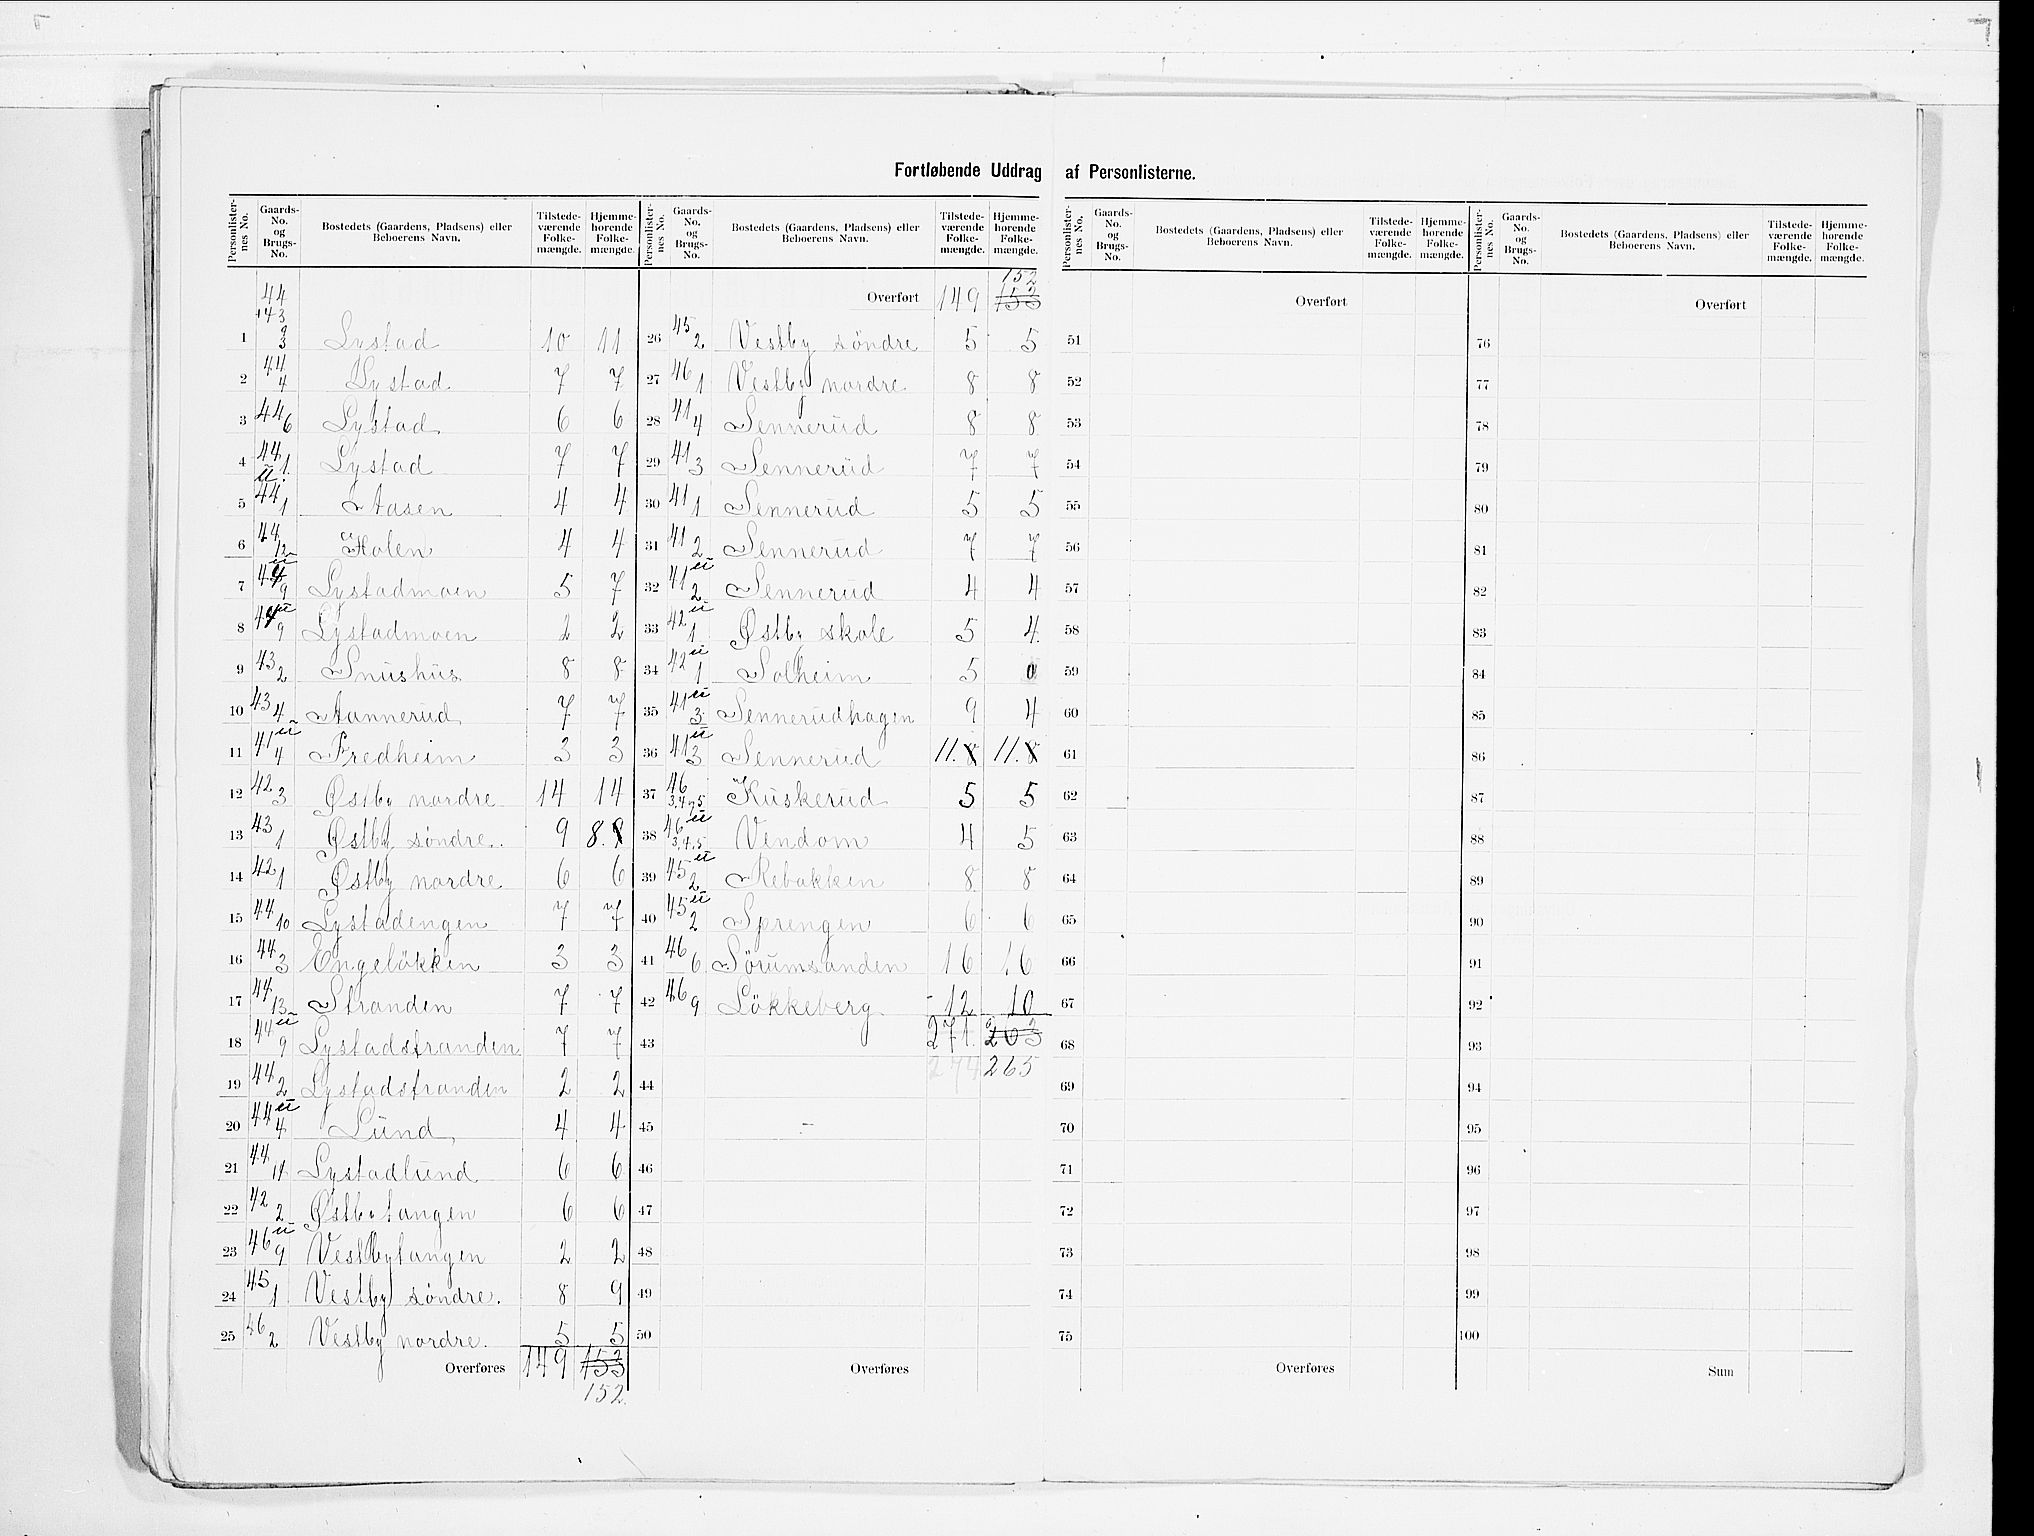 Fortløbende Uddrag af Personlisterne.
Personlister-nes No. Gaards-No. og Brugs-No. Bostedets (Gaardens, Pladsens) eller Beboerens Navn. Tilstede-værende Folke-mængde. Hjemme-hørende Folke-mængde.
1 44 1 43 2 3 Lystad 10 11
2 44 4 Lystad 7 7
3 44 6 Lystad 6 6
4 44 1. Lystad 7 7
5 u. 44 1 Aasen 4 4
6 44 12 Holen 4 4
7 u 44 9 Lystadmoen 5 7
8 44 u 9 Lystadmoen 2 2
9 43 2 Snushus 8 8
10 43 4 Aannerud 7 7
11 41 u 4 Fredheim 3 3
12 42 3 Østby nordre 14 14
13 43 1 Østby søndre. 9 8.
14 42 1 Østby nordre 6 6
15 44 10 Lystadengen 7 7
16 44 3 Engeløkken 3 3
17 44 13 Stranden 7 7
18 44 u 9 Lystadstranden 7 7
19 44 2 Lystadstranden 2 2
20 44 u 4 Lund 4 4
21 44 11 Lystadlund 6 6
22 42 2 Østbytangen 6 6
23 46 u 9 Vestbytangen 2 2
24 45 1 Vestby søndre. 8 9
25 46 2 Vestby nordre. 5 5
Overføres 149 153
152
Personlister-nes No. Gaards-No. og Brugs-No. Bostedets (Gaardens, Pladsens) eller Beboerens Navn. Tilstede-værende Folke-mængde. Hjemme-hørende Folke-mængde.
152
Overført 149 153
26 45 2 Vestby søndre 5 5
27 46 1 Vestby nordre 8 8
28 41 4 Sennerud 8 8
29 41 3 Sennerud 7 7
30 41 1 Sennerud 5 5
31 41 2 Sennerud 7 7
32 41 u 2 Sennerud 4 4
33 42 u 1 Østby skole 5 4
34 42 u 1 Solheim 5 0
35 41 u 3 Sennerudhagen 9 4
36 41 u 3 Sennerud 11. 8 11. 8
37 46 3,4,5 Kuskerud 5 5
38 46 u 3.4.5 Vendom 4 5
39 45 u 2 Rebakken 8 8
40 45 u 2 Sprengen 6 6
41 46 6 Sörumsanden 16 16
42 46 9 Lökkeberg 12 10
43 271 263
44 274 265
45
46
47
48
49
50
Overføres
Personlister-nes No. Gaards-No. og Brugs-No. Bostedets (Gaardens, Pladsens) eller Beboerens Navn. Tilstede-værende Folke-mængde. Hjemme-hørende Folke-mængde.
Overført
51
52
53
54
55
56
57
58
59
60
61
62
63
64
65
66
67
68
69
70
71
72
73
74
75
Overføres
Personlister-nes No. Gaards-No. og Brugs-No. Bostedets (Gaardens, Pladsens) eller Beboerens Navn. Tilstede-værende Folke-mængde. Hjemme-hørende Folke-mængde.
Overført
76
77
78
79
80
81
82
83
84
85
86
87
88
89
90
91
92
93
94
95
96
97
98
99
100
Sum